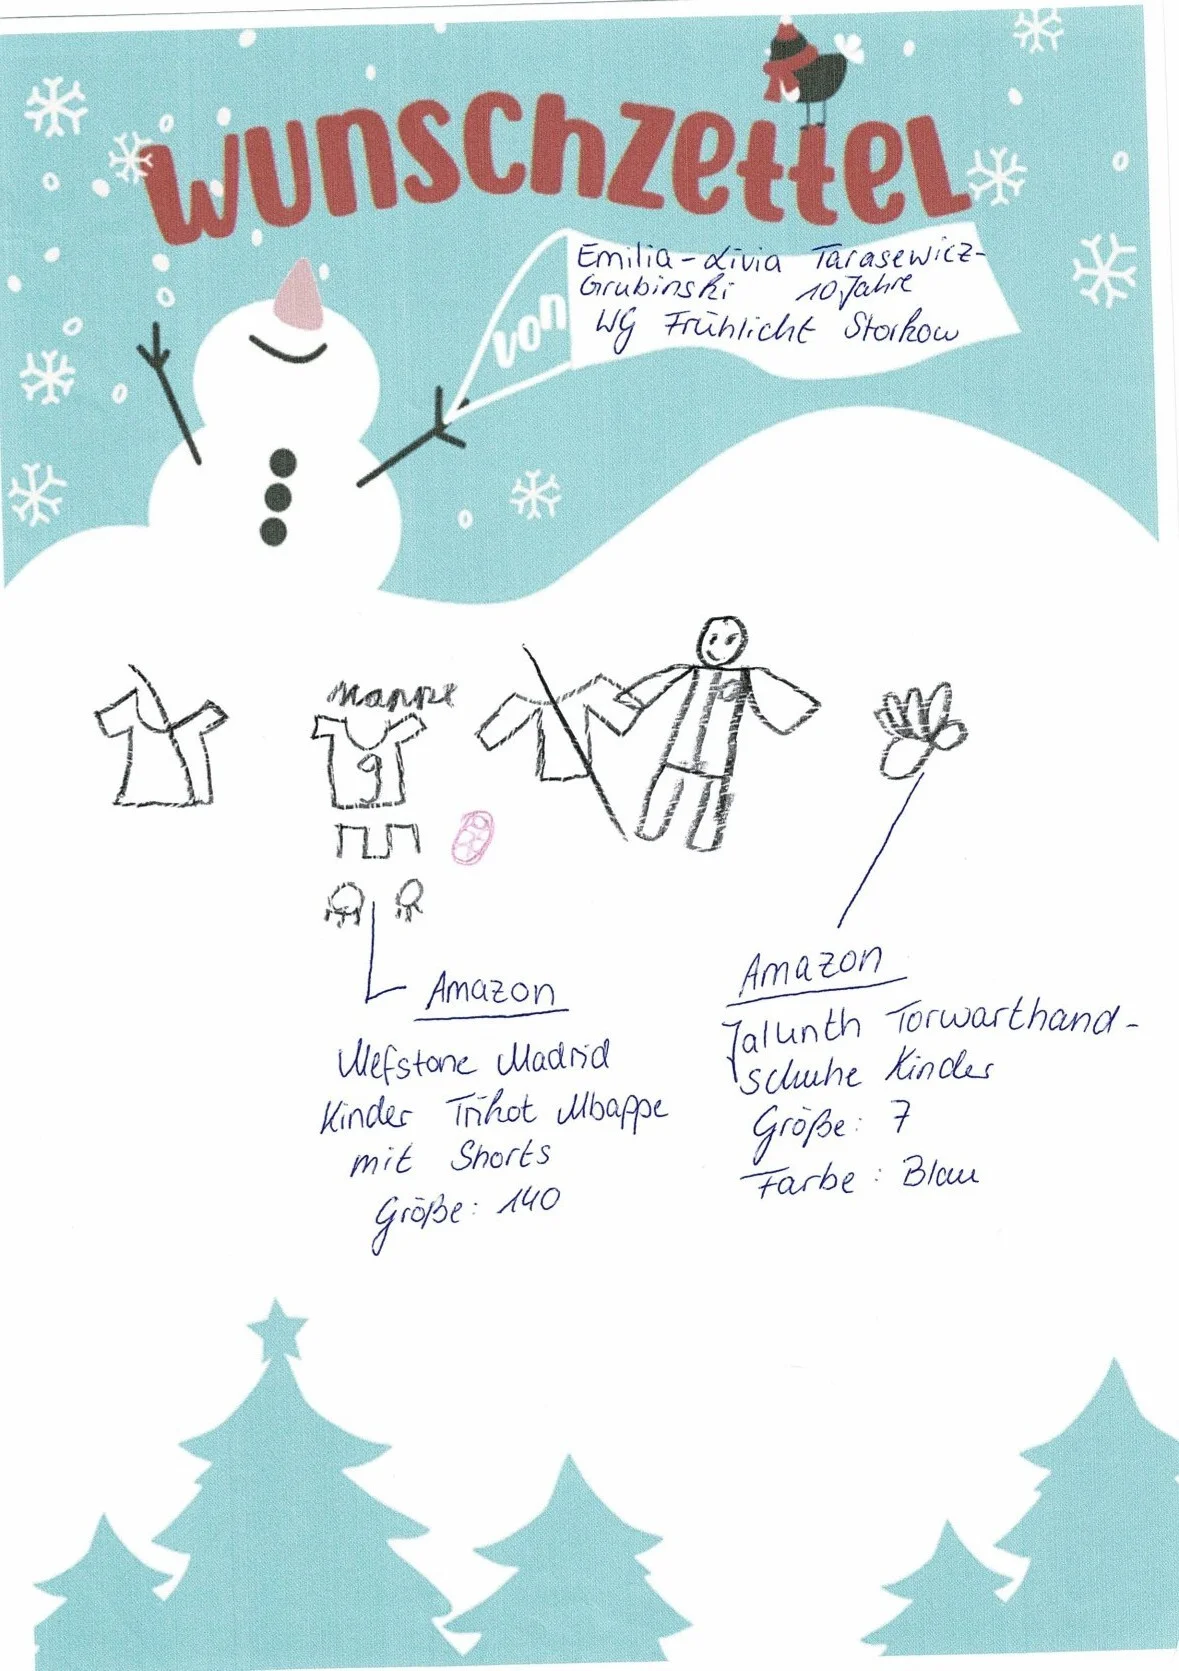 WUNSCHZETTEL
von
Emilia-Livia Tarasewicz-
Grubinski 10 Jahre
WG Frühlicht Storkow
Mappe
9
Amazon
Mefstone Madrid
Kinder Trikot Mbappe
mit Shorts
Größe: 140
Amazon
Jalunth Torwarthand-
schuhe Kinder
Größe: 7
Farbe: Blau